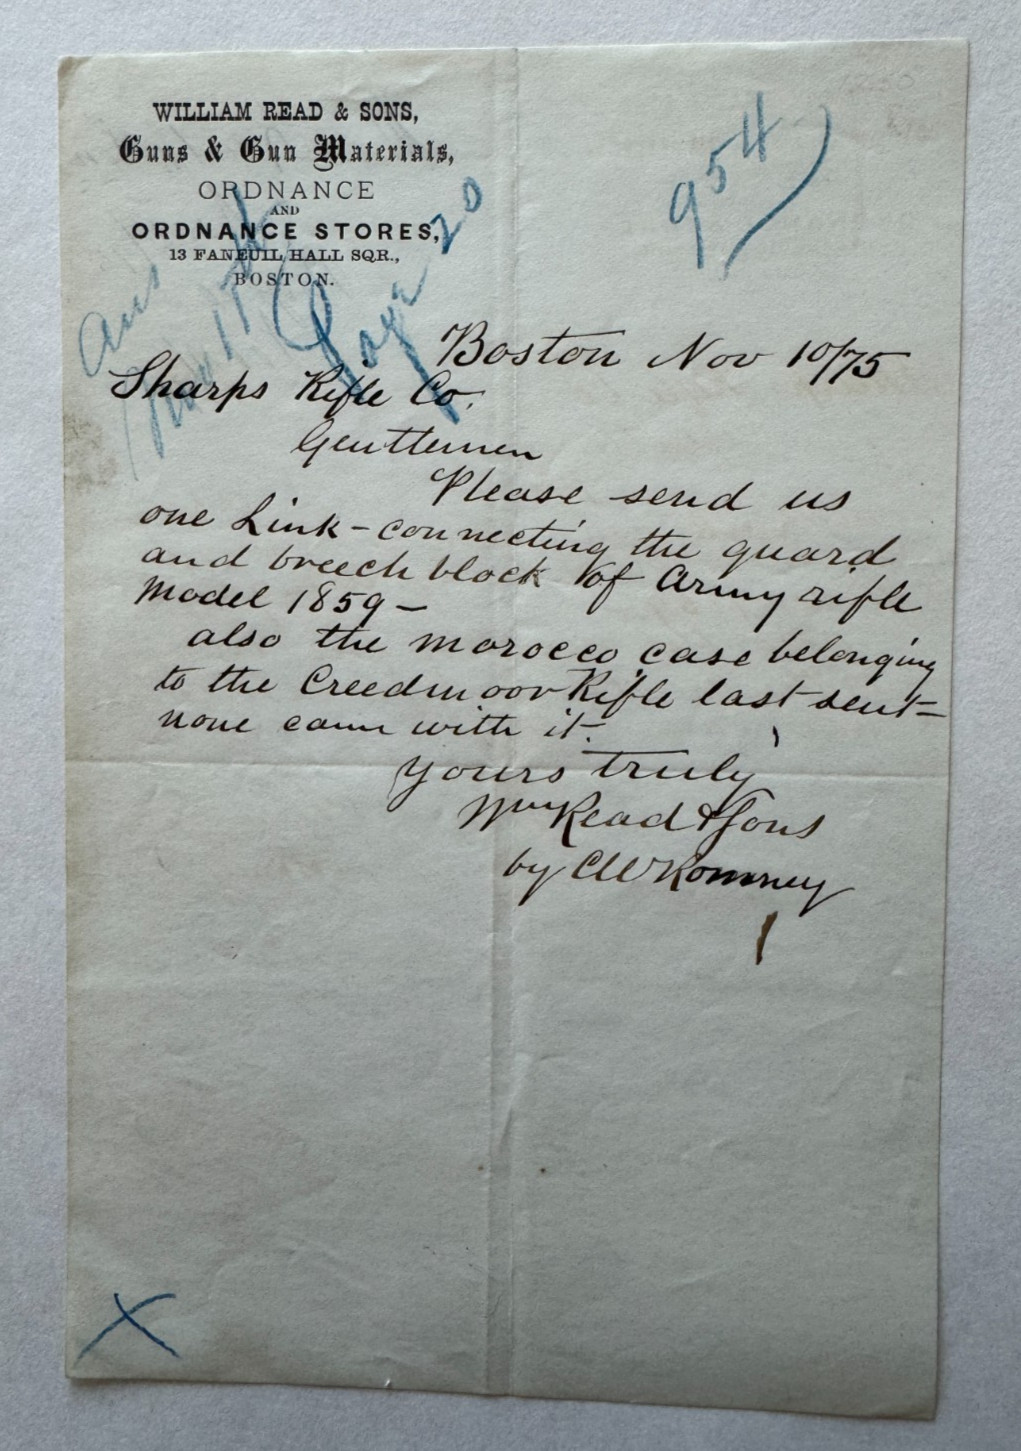 WILLIAM READ & SONS,
Guns & Gun Materials,
ORDNANCE
AND
ORDNANCE STORES,
13 FANEUIL HALL SQR.,
BOSTON.
954
Ans
Nov 11th
Page 20
Boston Nov 10/75
Sharps Rifle Co.
Gentlemen
Please send us
one Link - connecting the guard
and breech block of Army rifle
Model 1859 -
also the morocco case belonging
to the Creedmoor Rifle last sent -
none came with it.
Yours truly
Wm Read & Sons
by CW Romney
X